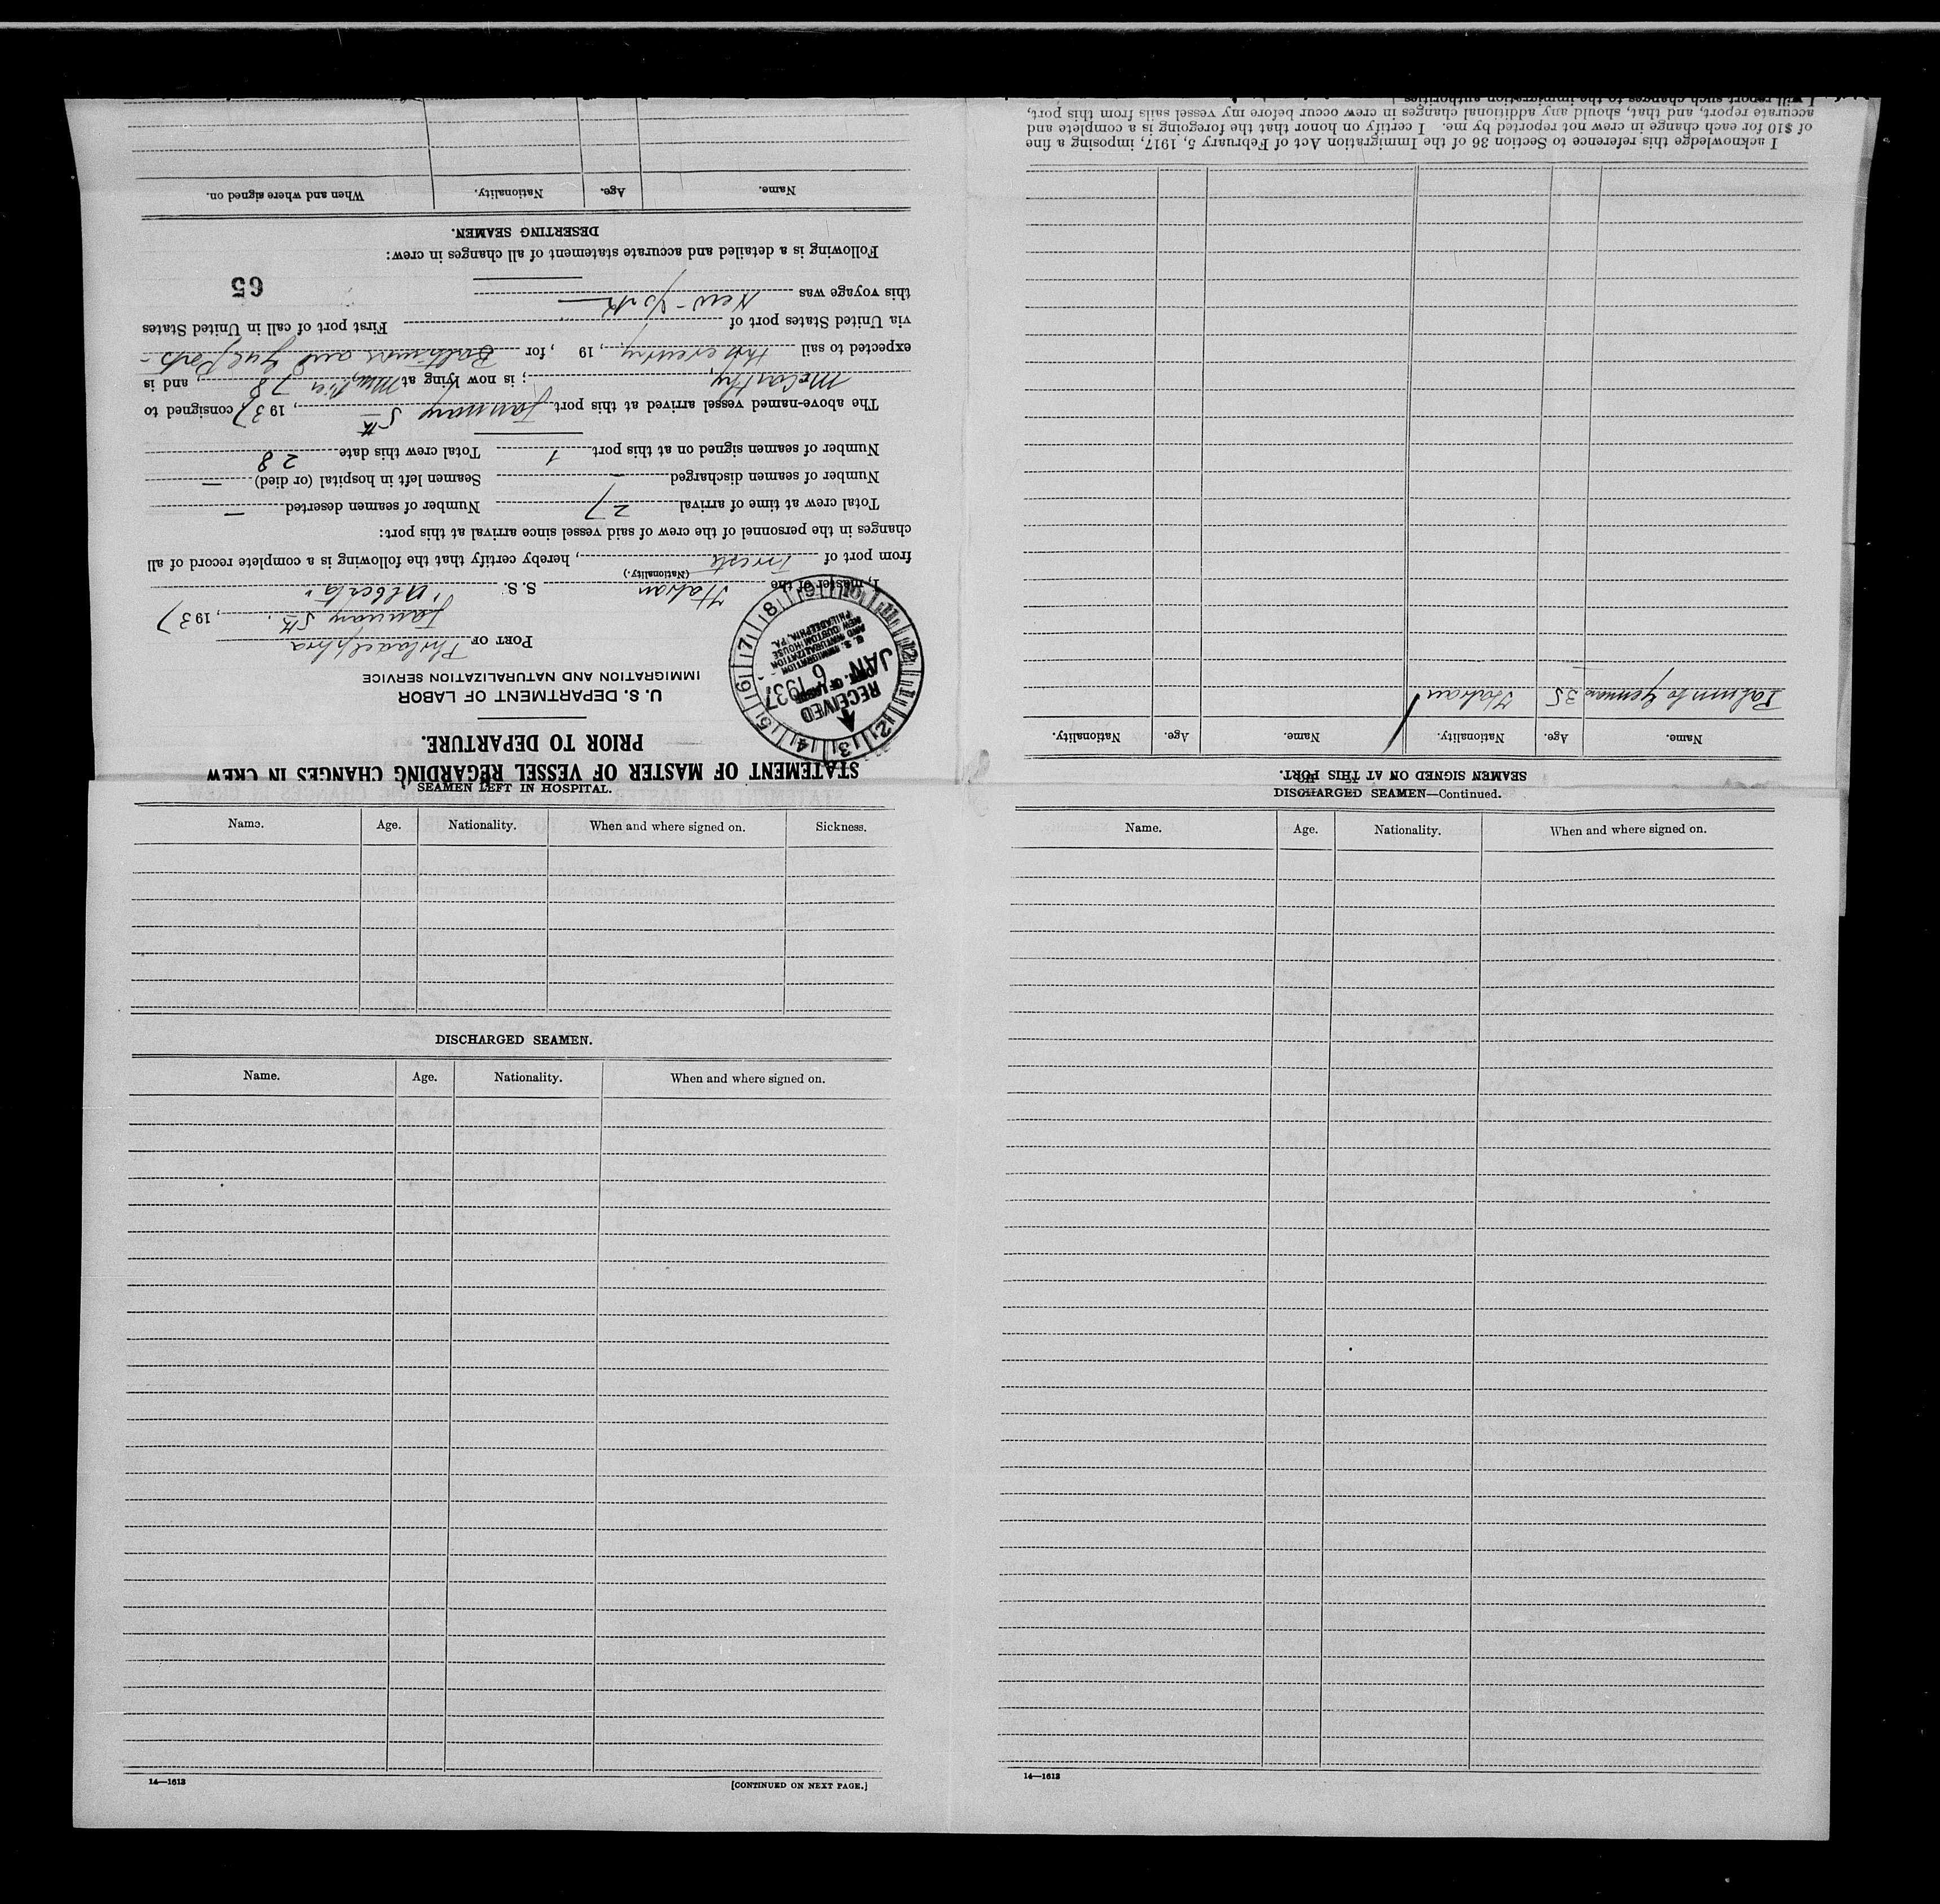 STATEMENT OF MASTER OF VESSEL REGARDING CHANGES IN CREW
PRIOR TO DEPARTURE.
U. S. DEPARTMENT OF LABOR
IMMIGRATION AND NATURALIZATION SERVICE
RECEIVED
JAN 6 1937
DEPT. OF LABOR
U. S. IMMIGRATION
AND NATURALIZATION
NEW CUSTOM HOUSE
PHILADELPHIA, PA.
PORT OF Philadelphia
January 5th, 1937
I, master of the Italian S. S. "Alberta"
(Nationality.)
from port of Trieste, hereby certify that the following is a complete record of all
changes in the personnel of the crew of said vessel since arrival at this port:
Total crew at time of arrival 27 Number of seamen deserted —
Number of seamen discharged — Seamen left in hospital (or died) —
Number of seamen signed on at this port 1 Total crew this date 28
The above-named vessel arrived at this port January 5th, 1937, consigned to
McCarthy; is now lying at 78, and is
expected to sail this evening, 19 , for Baltimore and Gulf Ports
via United States port of First port of call in United States
this voyage was New-York
65
Following is a detailed and accurate statement of all changes in crew:
DESERTING SEAMEN.
Name. Age. Nationality. When and where signed on.
SEAMEN SIGNED ON AT THIS PORT.
Name. Age. Nationality. Name. Age. Nationality.
Palumbo 35 Italian
I acknowledge this reference to Section 36 of the Immigration Act of February 5, 1917, imposing a fine
of $10 for each change in crew not reported by me. I certify on honor that the foregoing is a complete and
accurate report, and that, should any additional changes in crew occur before my vessel sails from this port,
I will report such changes to the immigration authorities
SEAMEN LEFT IN HOSPITAL.
Name. Age. Nationality. When and where signed on. Sickness.
DISCHARGED SEAMEN.
Name. Age. Nationality. When and where signed on.
14—1613
[CONTINUED ON NEXT PAGE.]
DISCHARGED SEAMEN—Continued.
Name. Age. Nationality. When and where signed on.
14—1613